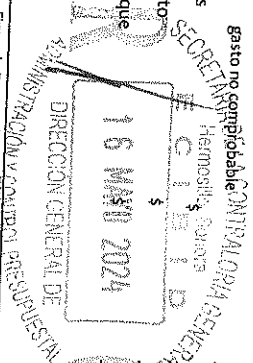 gasto no comprobable
s
$
to
$
que
SECRETARIA DE LA CONTRALORIA GENERAL
Hermosillo, Sonora
RECIBIDO
16 MAYO 2024
DIRECCION GENERAL DE
ADMINISTRACION Y CONTROL PRESUPUESTAL